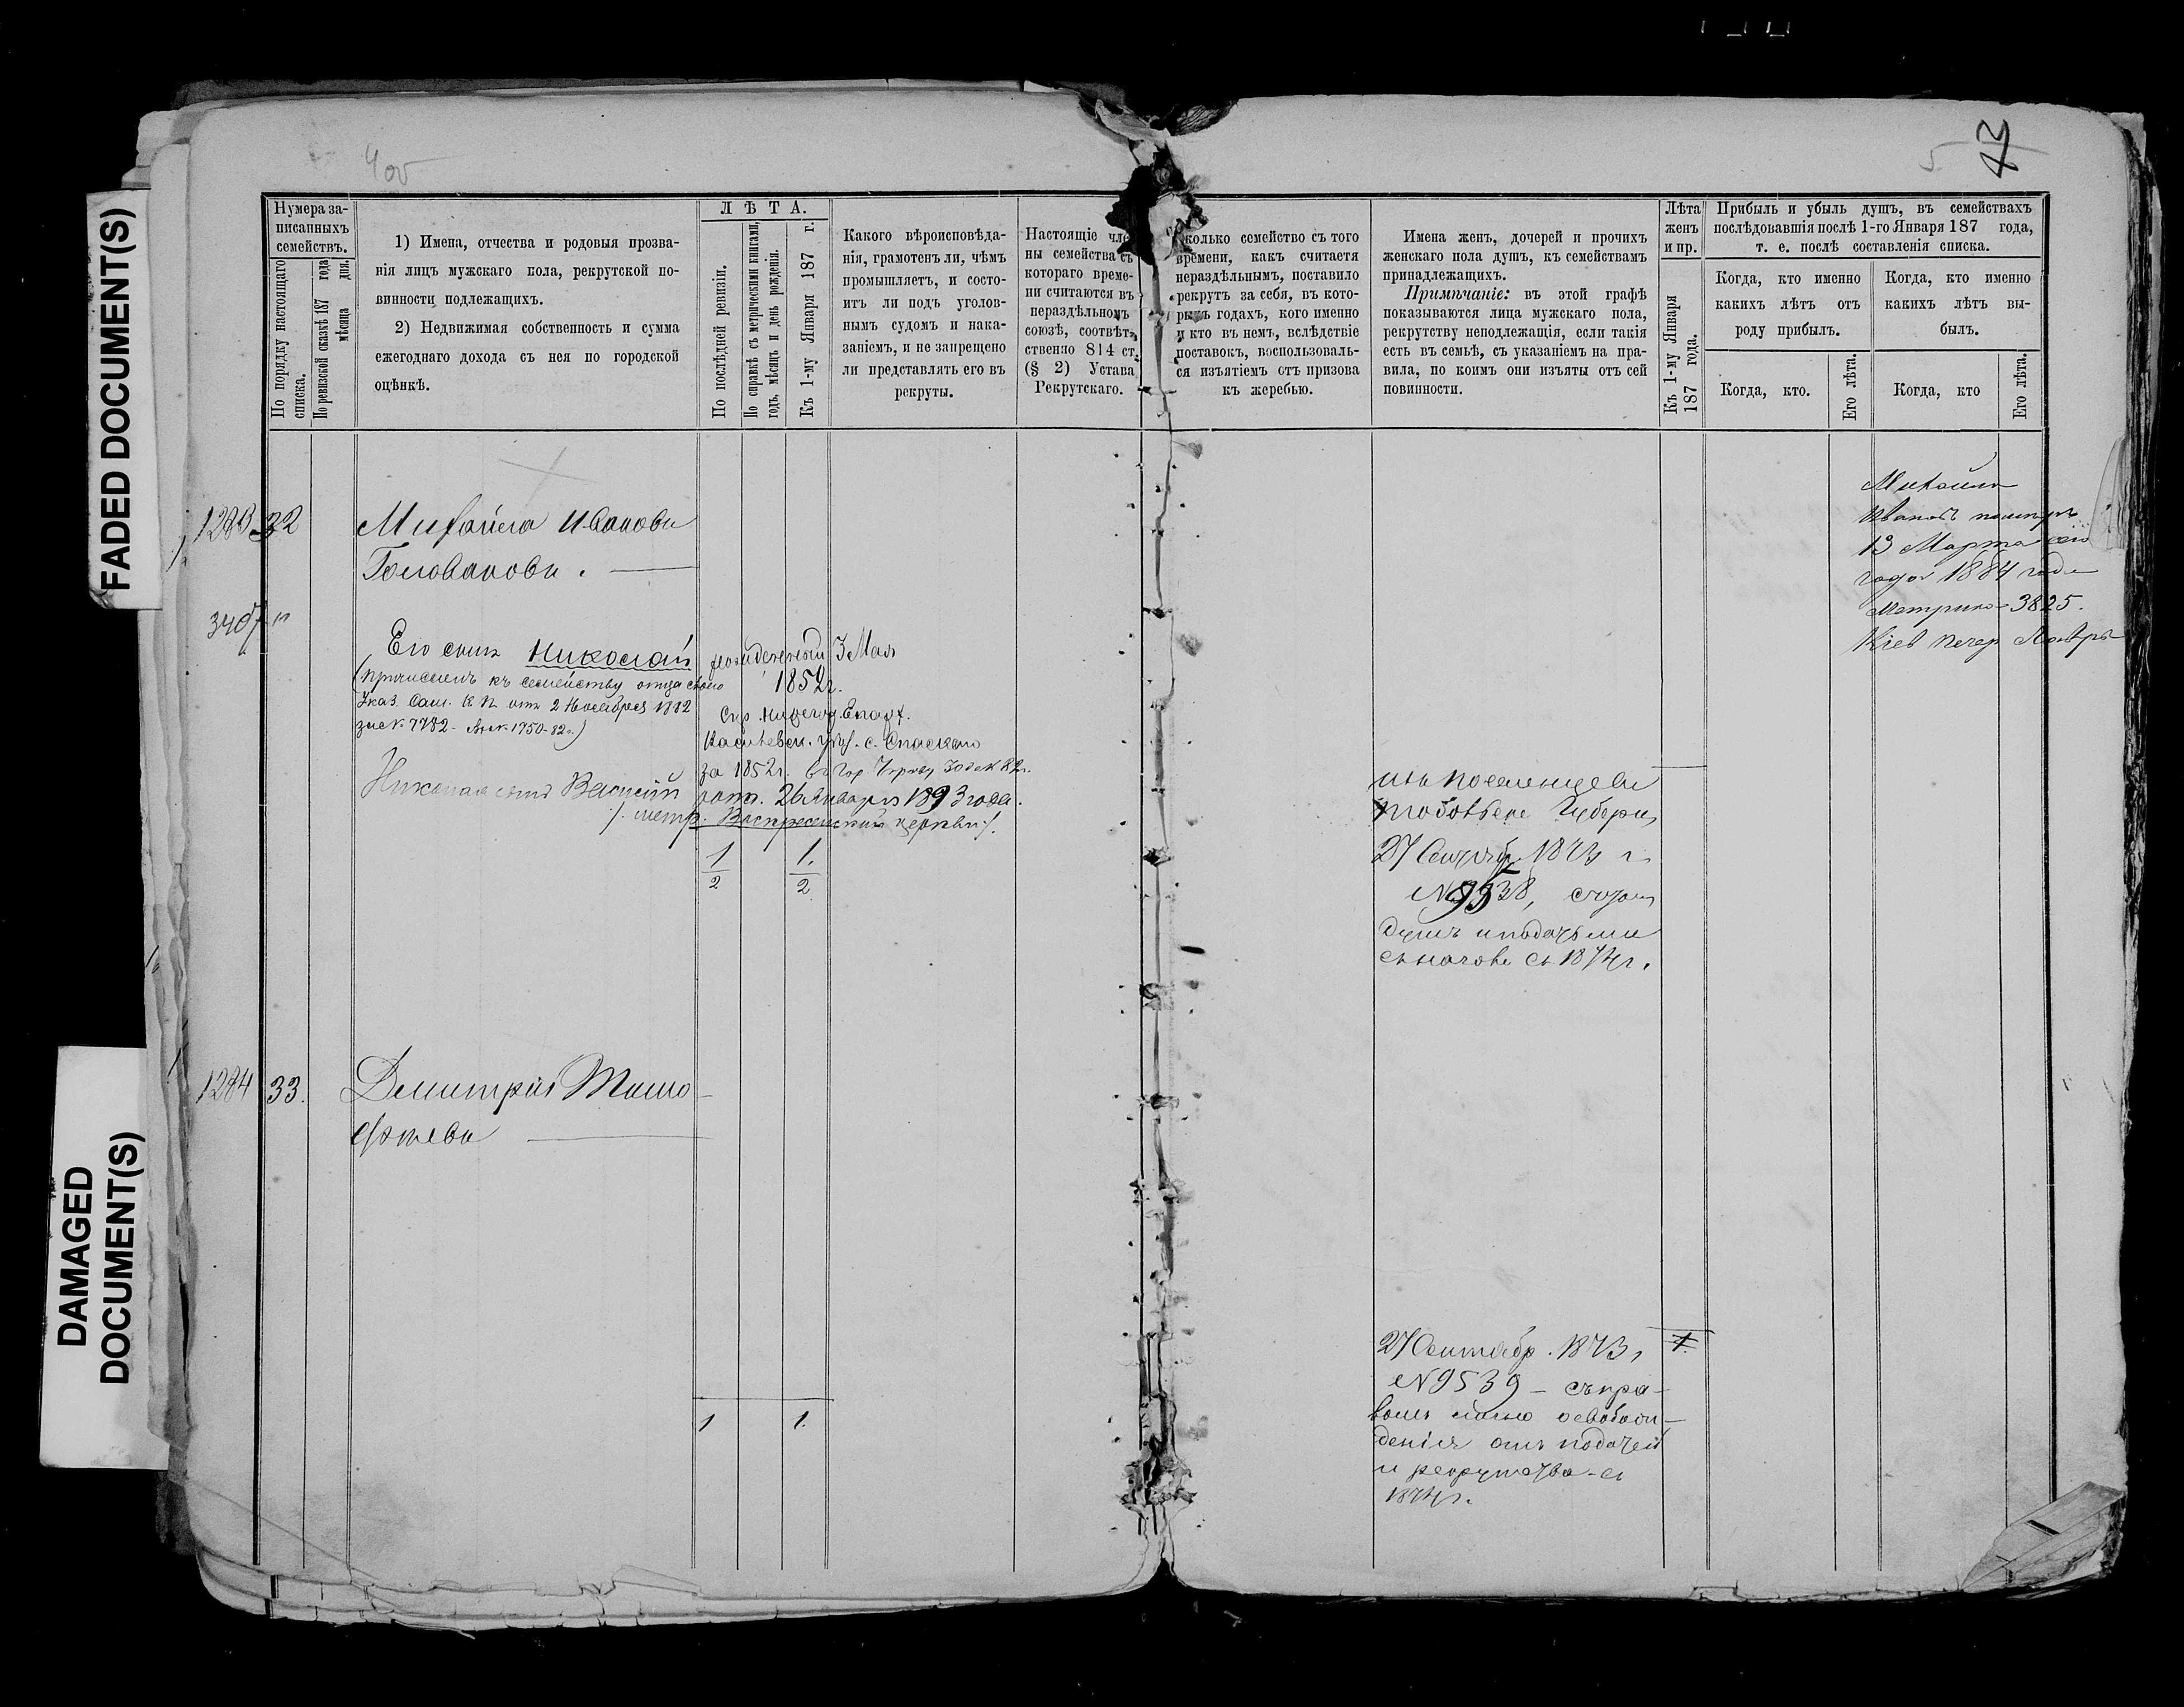 FADED DOCUMENT(S)
DAMAGED
DOCUMENT(S)
400
5
Нумера за-
писанныхъ
семействъ.
По порядку настоящаго
списка.
По ревизской сказкѣ 187 года
мѣсяца дня.
1) Имена, отчества и родовыя прозва-
нія лицъ мужскаго пола, рекрутской по-
винности подлежащихъ.
2) Недвижимая собственность и сумма
ежегоднаго дохода съ нея по городской
оцѣнкѣ.
ЛѢТА.
По послѣдней ревизіи.
По справкѣ съ метрическими книгами,
годъ, мѣсяцъ и день рожденія.
Къ 1-му Января 187 г.
Какого вѣроисповѣда-
нія, грамотенъ ли, чѣмъ
промышляетъ, и состо-
итъ ли подъ уголов-
нымъ судомъ и нака-
заніемъ, и не запрещено
ли представлять его въ
рекруты.
Настоящіе чле-
ны семейства съ
котораго време-
ни считаются въ
нераздѣльномъ
союзѣ, соотвѣт-
ственно 814 ст.
(§ 2) Устава
Рекрутскаго.
сколько семейство съ того
времени, какъ считается
нераздѣльнымъ, поставило
рекрутъ за себя, въ кото-
рыхъ годахъ, кого именно
и кто въ немъ, вслѣдствіе
поставокъ, воспользовал-
ся изъятіемъ отъ призова
къ жеребью.
Имена женъ, дочерей и прочихъ
женскаго пола душъ, къ семействамъ
принадлежащихъ.
Примѣчаніе: въ этой графѣ
показываются лица мужскаго пола,
рекрутству неподлежащія, если такія
есть въ семьѣ, съ указаніемъ на пра-
вила, по коимъ они изъяты отъ сей
повинности.
Лѣта
женъ
и пр.
Къ 1-му Января
187 года.
Прибыль и убыль душъ, въ семействахъ
послѣдовавшія послѣ 1-го Января 187 года,
т. е. послѣ составленія списка.
Когда, кто именно
какихъ лѣтъ отъ
роду прибылъ.
Когда, кто именно
какихъ лѣтъ вы-
былъ.
Когда, кто.
Его лѣта.
Когда, кто
Его лѣта.
1283 32
Михайла Ивановъ
Головановъ.
3407
Его сынъ Николай рожденный 3 Мая
1852г.
(причисленъ къ семейству отца своего
Указ. Сам. К. П. отъ 2 Ноября 1882
за № 7782
с. Спаскаго
за 1852г.
Николая сынъ Василій рожд. 26 Января 1893 года.
/. метр. Воскресенской церкви /.
1 1.
2 2
Михайла
Ивановъ померъ
13 Марта сего
года 1884 года
Метрика 3825.
Кіев Печер Лавры
изъ поселенцевъ
Тобольске Губерн
№ 9538, съ
душъ и податьми
1284 33.
Дмитрій Тимо-
феевъ
1 1.
27 Сентябр. 1873 г
№ 9539 – съ пра-
вомъ освобож-
денія отъ податей
и рекрутства съ
1874г.
1.